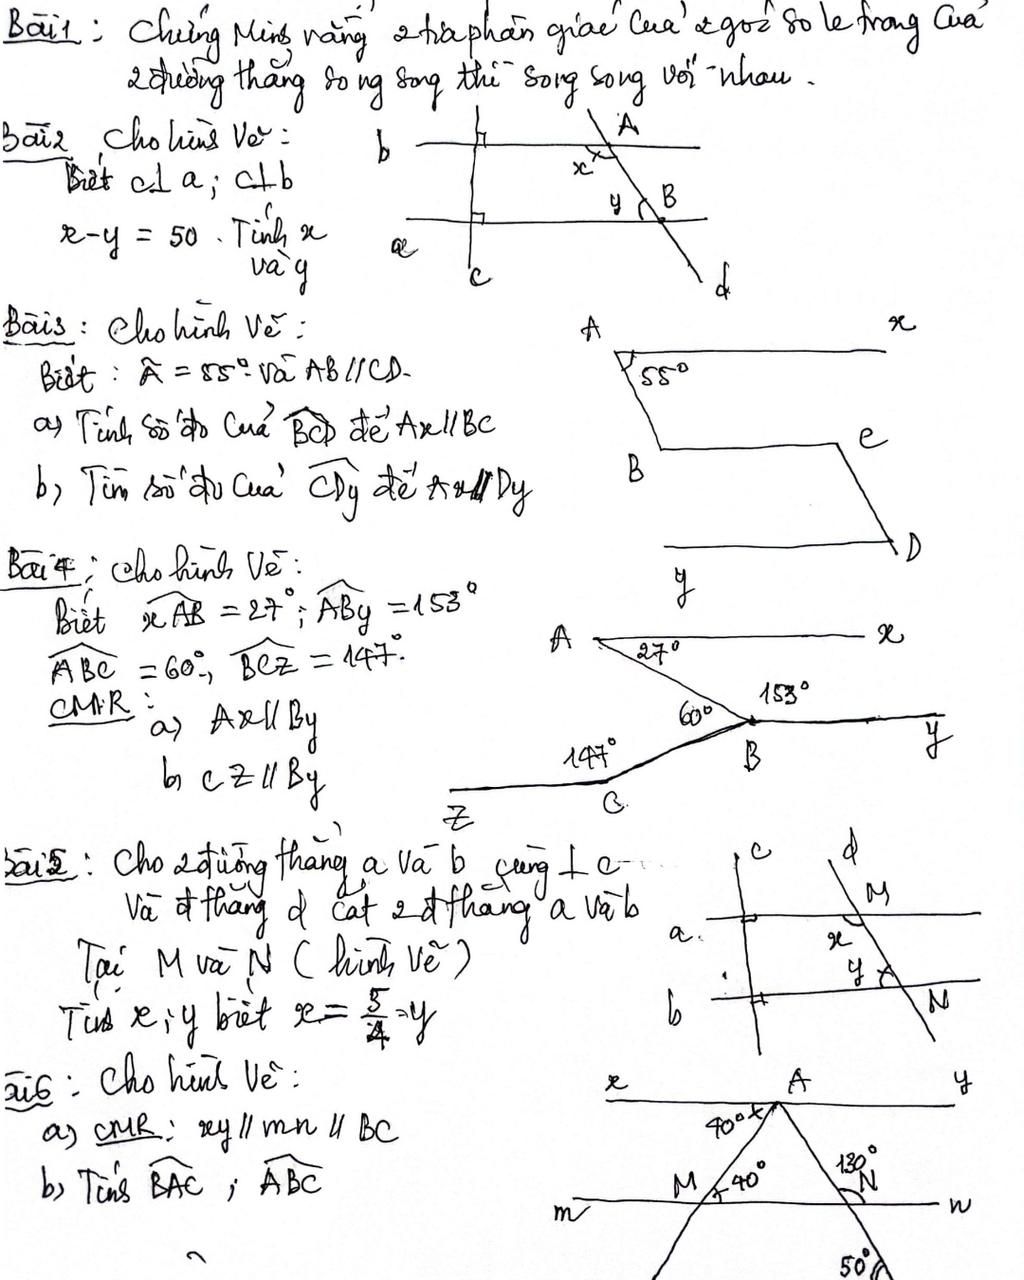 Bài 1: Chứng Minh rằng 2 tia phân giác của 2 góc so le trong của
2 đường thẳng song song thì song song với nhau.
Bài 2 Cho hình vẽ:
Biết c⊥a; c⊥b
x-y = 50. Tính x
và y
b
A
x
y
B
a
c
d
Bài 3: Cho hình vẽ:
Biết: Â = 55° và AB//CD.
a) Tính số đo của BCD để Ax//BC
b) Tìm số đo của CDy để Ax//Dy
A
x
55°
B
C
D
y
Bài 4: Cho hình vẽ:
Biết xAB = 27°; ABy = 153°
ABC = 60°, BCZ = 147°.
CMR:
a) Ax//By
b) CZ//By
A
x
27°
153°
60°
147°
B
y
Z
C
Bài 5: Cho 2 đường thẳng a và b cùng ⊥ c
Và đ thẳng d cắt 2 đ thẳng a và b
Tại M và N (hình vẽ)
Tính x; y biết x = 5/4 y
c
d
M
a
x
y
b
N
ài 6: Cho hình vẽ:
a) CMR: xy // mn // BC
b) Tính BAC; ABC
x
A
y
40°
130°
M
40°
N
m
n
50°